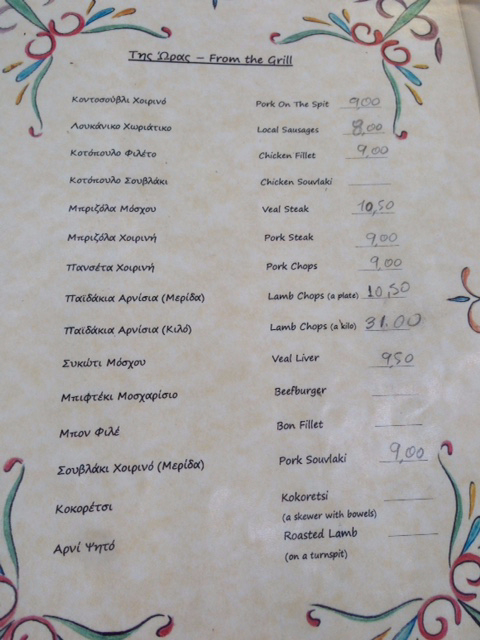 Της Ώρας – From the Grill
Κοντοσούβλι Χοιρινό Pork On The Spit 9,00
Λουκάνικο Χωριάτικο Local Sausages 8,00
Κοτόπουλο Φιλέτο Chicken Fillet 9,00
Κοτόπουλο Σουβλάκι Chicken Souvlaki
Μπριζόλα Μόσχου Veal Steak 10,50
Μπριζόλα Χοιρινή Pork Steak 9,00
Πανσέτα Χοιρινή Pork Chops 9,00
Παϊδάκια Αρνίσια (Μερίδα) Lamb Chops (a plate) 10,50
Παϊδάκια Αρνίσια (Κιλό) Lamb Chops (a kilo) 31.00
Συκώτι Μόσχου Veal Liver 9,50
Μπιφτέκι Μοσχαρίσιο Beefburger
Μπον Φιλέ Bon Fillet
Σουβλάκι Χοιρινό (Μερίδα) Pork Souvlaki 9,00
Κοκορέτσι Kokoretsi
(a skewer with bowels)
Αρνί Ψητό Roasted Lamb
(on a turnspit)